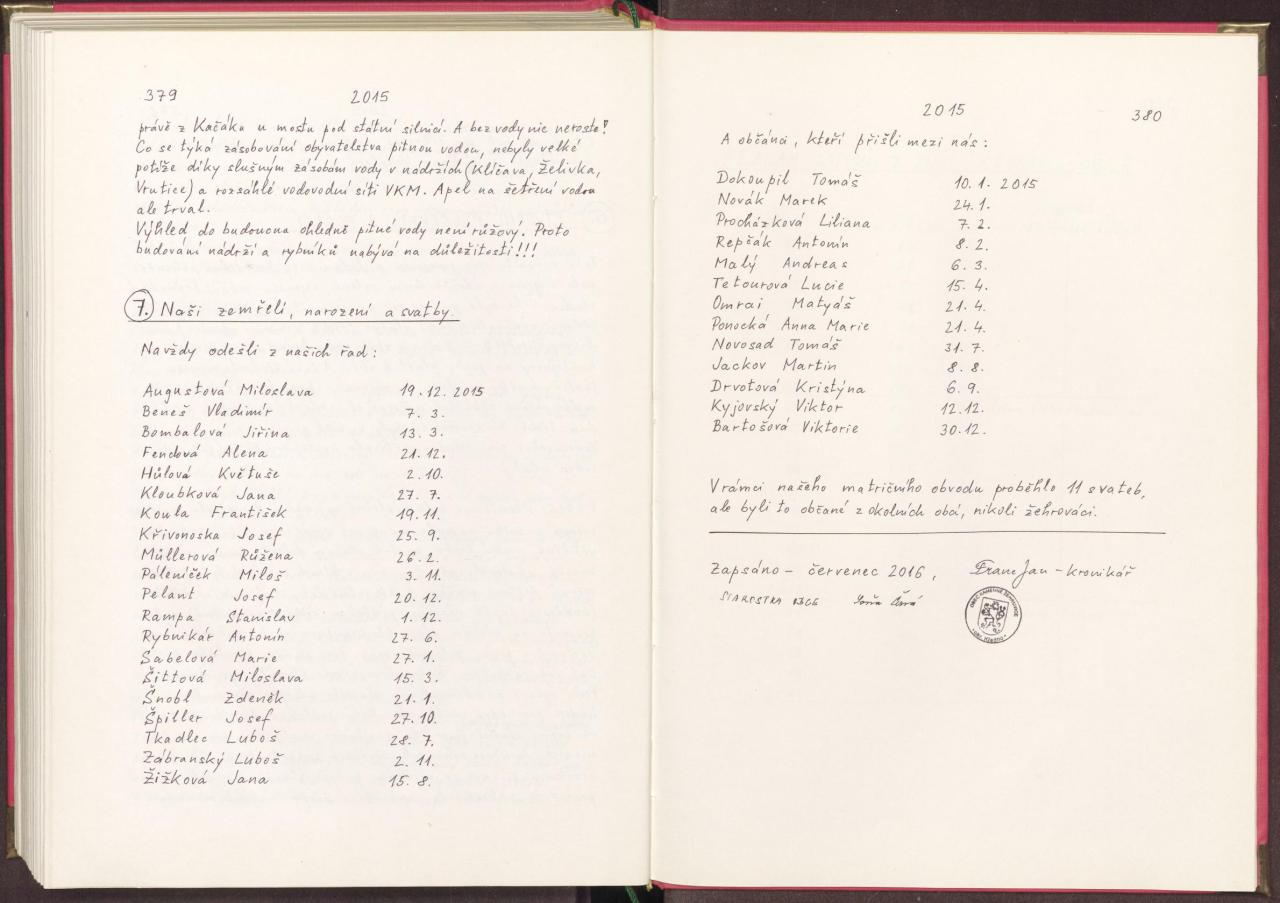 379
2015
právě z Kačáku u mostu pod státní silnicí. A bez vody nic neroste!
Co se týká zásobování obyvatelstva pitnou vodou, nebyly velké
potíže díky slušným zásobám vody v nádržích (Klíčava, Želivka,
Vrutice) a rozsáhlé vodovodní síti VKM. Apel na šetření vodou
ale trval.
Výhled do budoucna ohledně pitné vody není růžový. Proto
budování nádrží a rybníků nabývá na důležitosti!!!
7. Naši zemřelí, narození a svatby.
Navždy odešli z našich řad:
Augustová Miloslava 19.12. 2015
Beneš Vladimír 7. 3.
Bombalová Jiřina 13. 3.
Fendová Alena 21. 12.
Hůlová Květuše 2. 10.
Kloubková Jana 27. 7.
Koula František 19. 11.
Křivonoska Josef 25. 9.
Müllerová Růžena 26. 2.
Páleníček Miloš 3. 11.
Pelant Josef 20. 12.
Rampa Stanislav 1. 12.
Rybnikár Antonín 27. 6.
Šabelová Marie 27. 1.
Šittová Miloslava 15. 3.
Šnobl Zdeněk 21. 1.
Špiller Josef 27. 10.
Tkadlec Luboš 28. 7.
Zábranský Luboš 2. 11.
Žižková Jana 15. 8.
2015
380
A občánci, kteří přišli mezi nás:
Dokoupil Tomáš 10. 1. 2015
Novák Marek 24. 1.
Procházková Liliana 7. 2.
Repčák Antonín 8. 2.
Malý Andreas 6. 3.
Tetourová Lucie 15. 4.
Omrai Matyáš 21. 4.
Ponocká Anna Marie 21. 4.
Novosad Tomáš 31. 7.
Jackov Martin 8. 8.
Drvotová Kristýna 6. 9.
Kyjovský Viktor 12. 12.
Bartošová Viktorie 30. 12.
V rámci našeho matričního obvodu proběhlo 11 svateb,
ale byli to občané z okolních obcí, nikoli žehrováci.
Zapsáno - červenec 2016, Franc Jan - kronikář
STAROSTKA OBCE